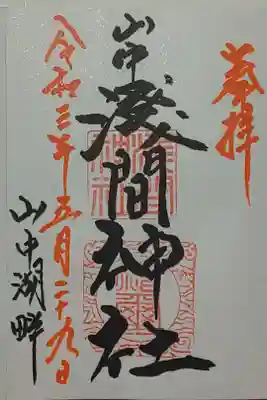 奉拝
山中
淺間神社
令和三年五月二十九日
山中湖畔